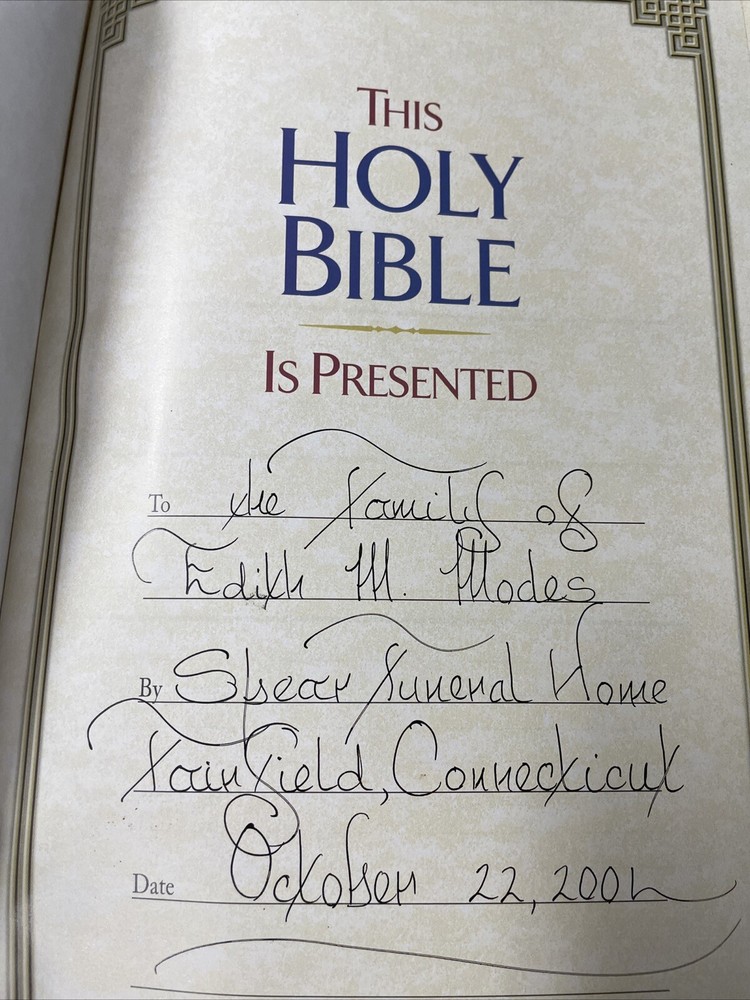 THIS
HOLY
BIBLE
IS PRESENTED
To the family of
Edith M. Rhodes
By Spear Funeral Home
Fairfield, Connecticut
Date October 22, 2002